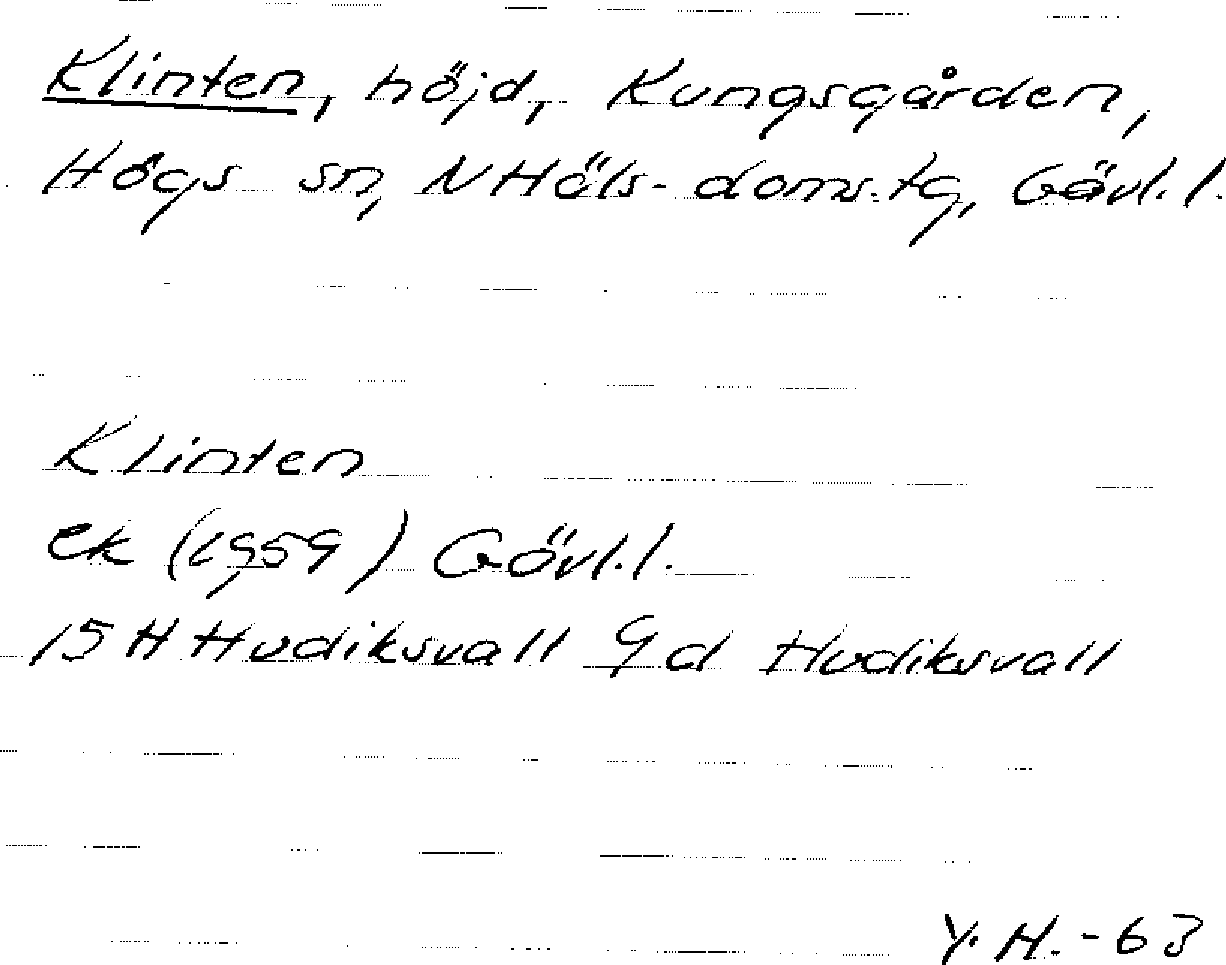 Klinten, höjd, Kungsgården,
Högs sn, N Häls. doms.tg, Gävl.l.
Klinten
ek (1959) Gävl.l.
15 H Hudiksvall 9 d Hudiksvall
Y. H. - 63